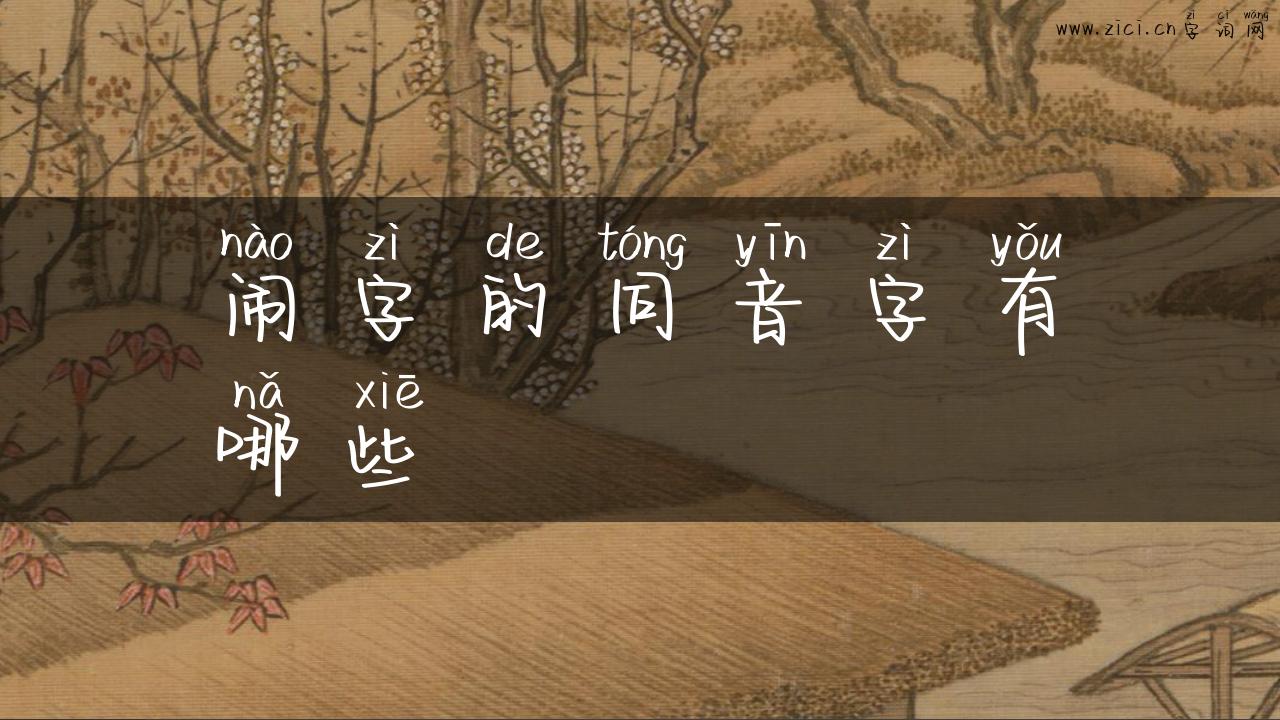 zì cí wǎng
www.zici.cn字词网
nào zì de tóng yīn zì yǒu
闹字的同音字有
nǎ xiē
哪些